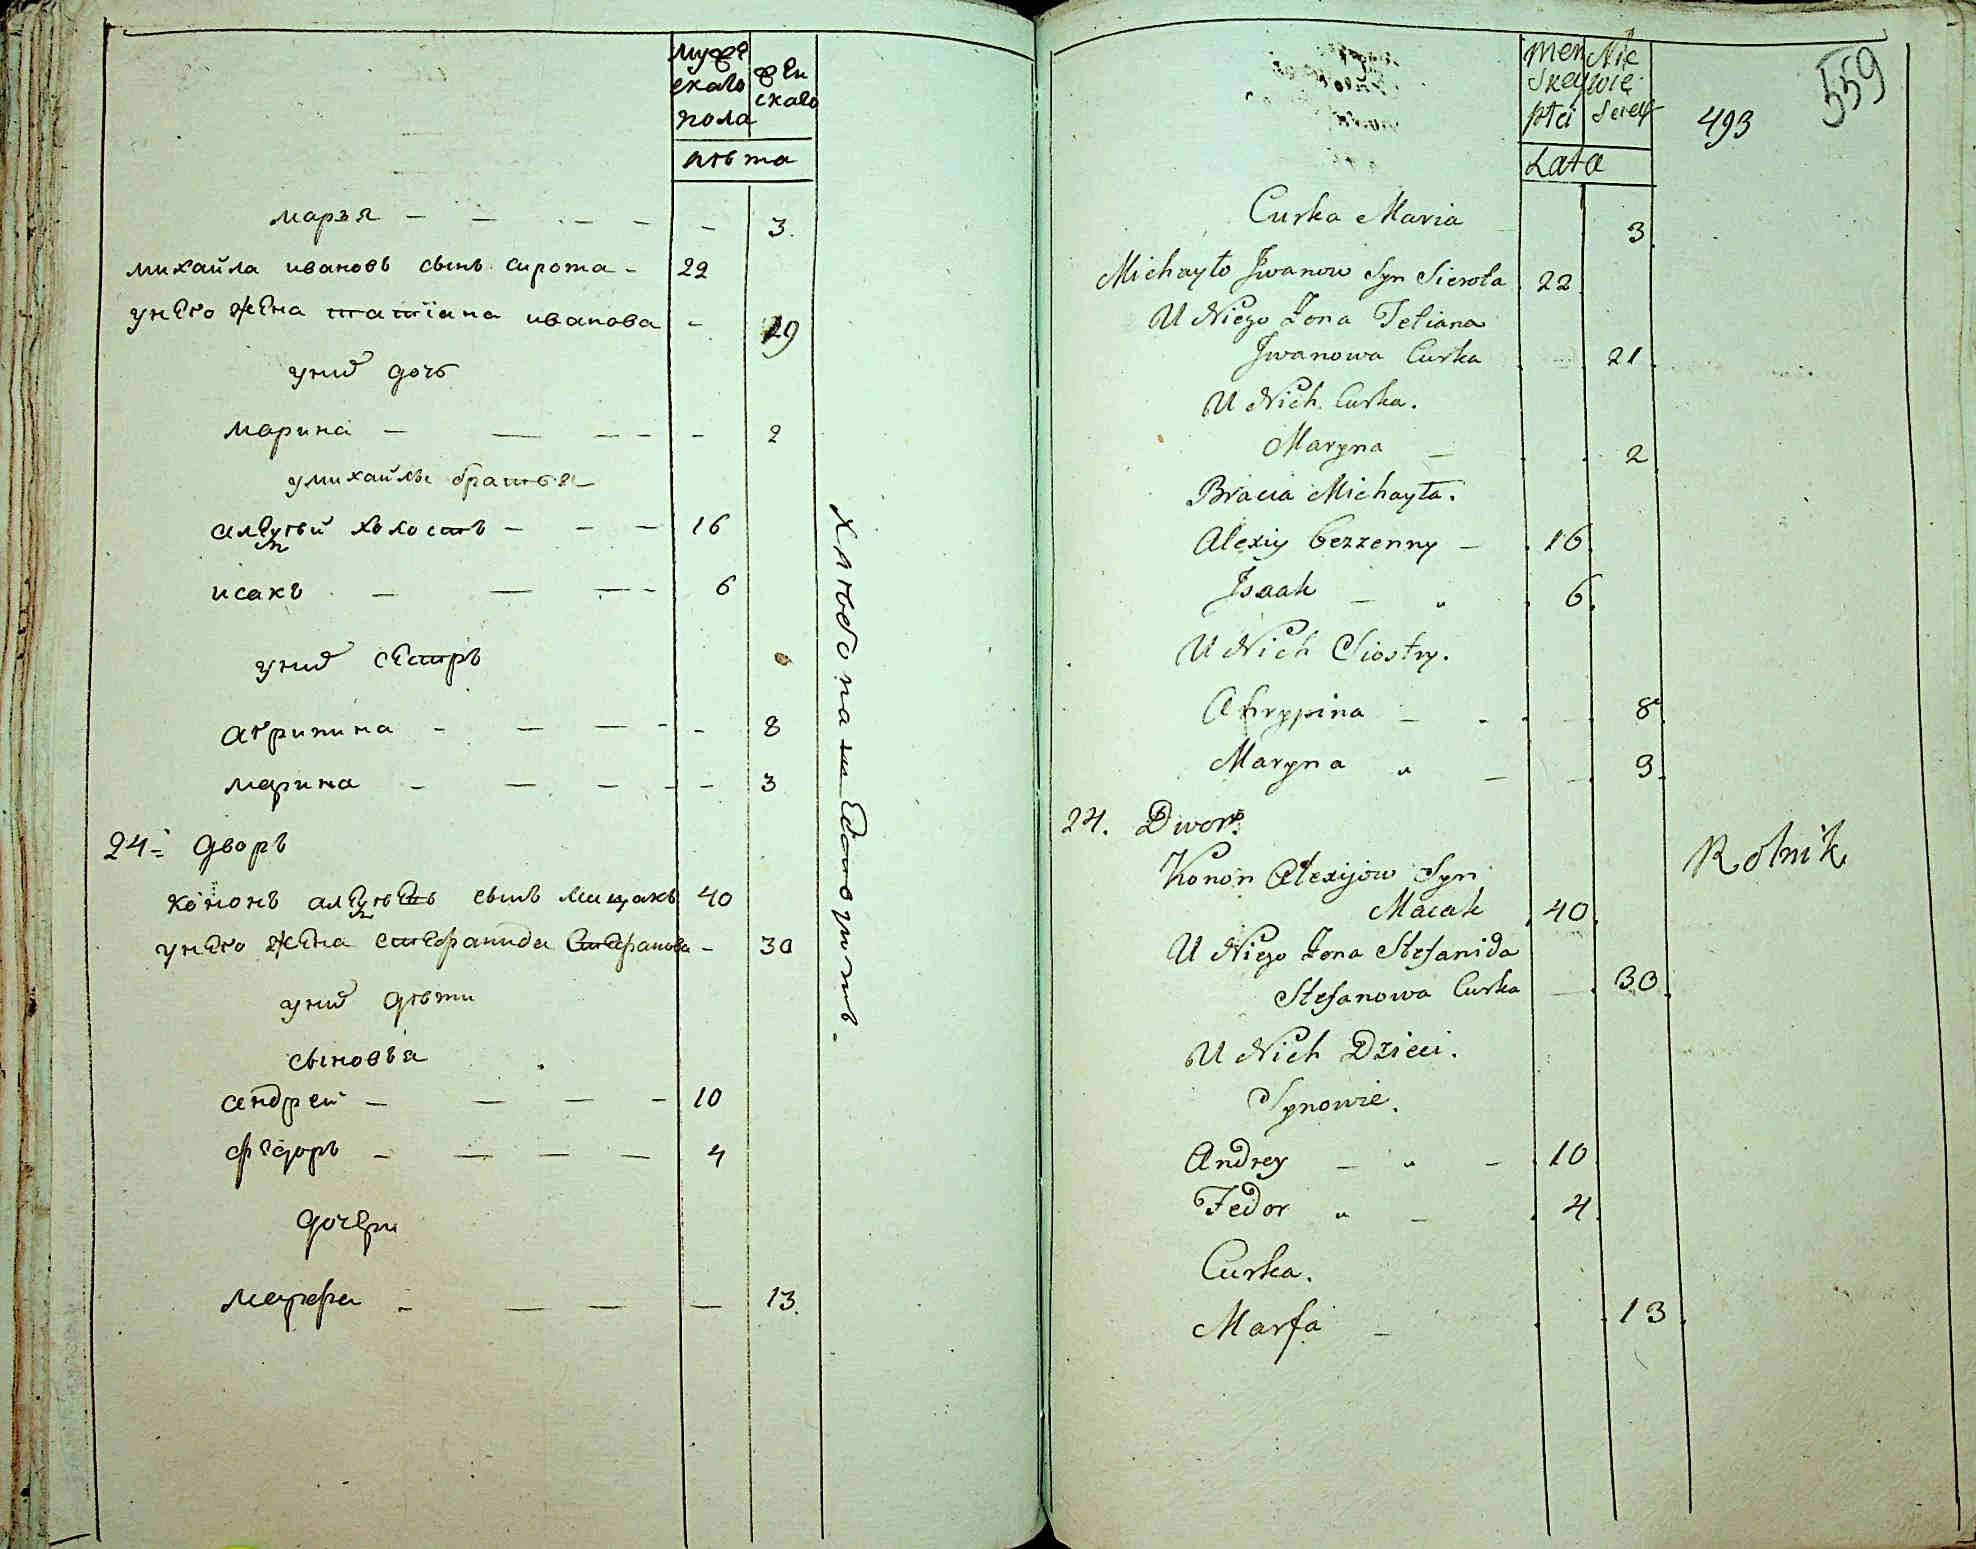 мужескаго пола
женскаго
лѣта
марья — — — — — 3.
михайла ивановъ сынъ сирота — 22
унего жена татїана иванова — 19
уних дочь
марина — — — — — 2
умихайлы братья
алексѣй холостъ — — — 16
исакъ — — — — 6
уних сестръ
агрипина — — — — — 8
марина — — — — — 3
24: дворъ
кононъ алексѣевъ сынъ мацакъ 40
унего жена стефанида стефанова — 30
уних дѣти
сыновья
андрей — — — — 10
федоръ — — — — 4
дочери
марфа — — — — 13.
хлѣбопашествуютъ.
559
493
Męzskey płci
Niewie
Lata
Curka Maria 3
Michayło Jwanow Syn Sierota 22
U Niego Żona Teliana
Jwanowa Curka 21
U Nich Curka.
Maryna — 2
Bracia Michayła.
Alexiy bezzenny — 16
Jsaak — " 6
U Nich Siostry.
Ahryppina — - — 8
Maryna " — — 3
24. Dwor.
Konon Alexijow Syn
Macak 40
U Niego Żona Stefanida
Stefanowa Curka — 30
U Nich Dzieci.
Synowie.
Andrey — " — 10
Fedor " — 4
Curka.
Marfa — 13
Rolnik